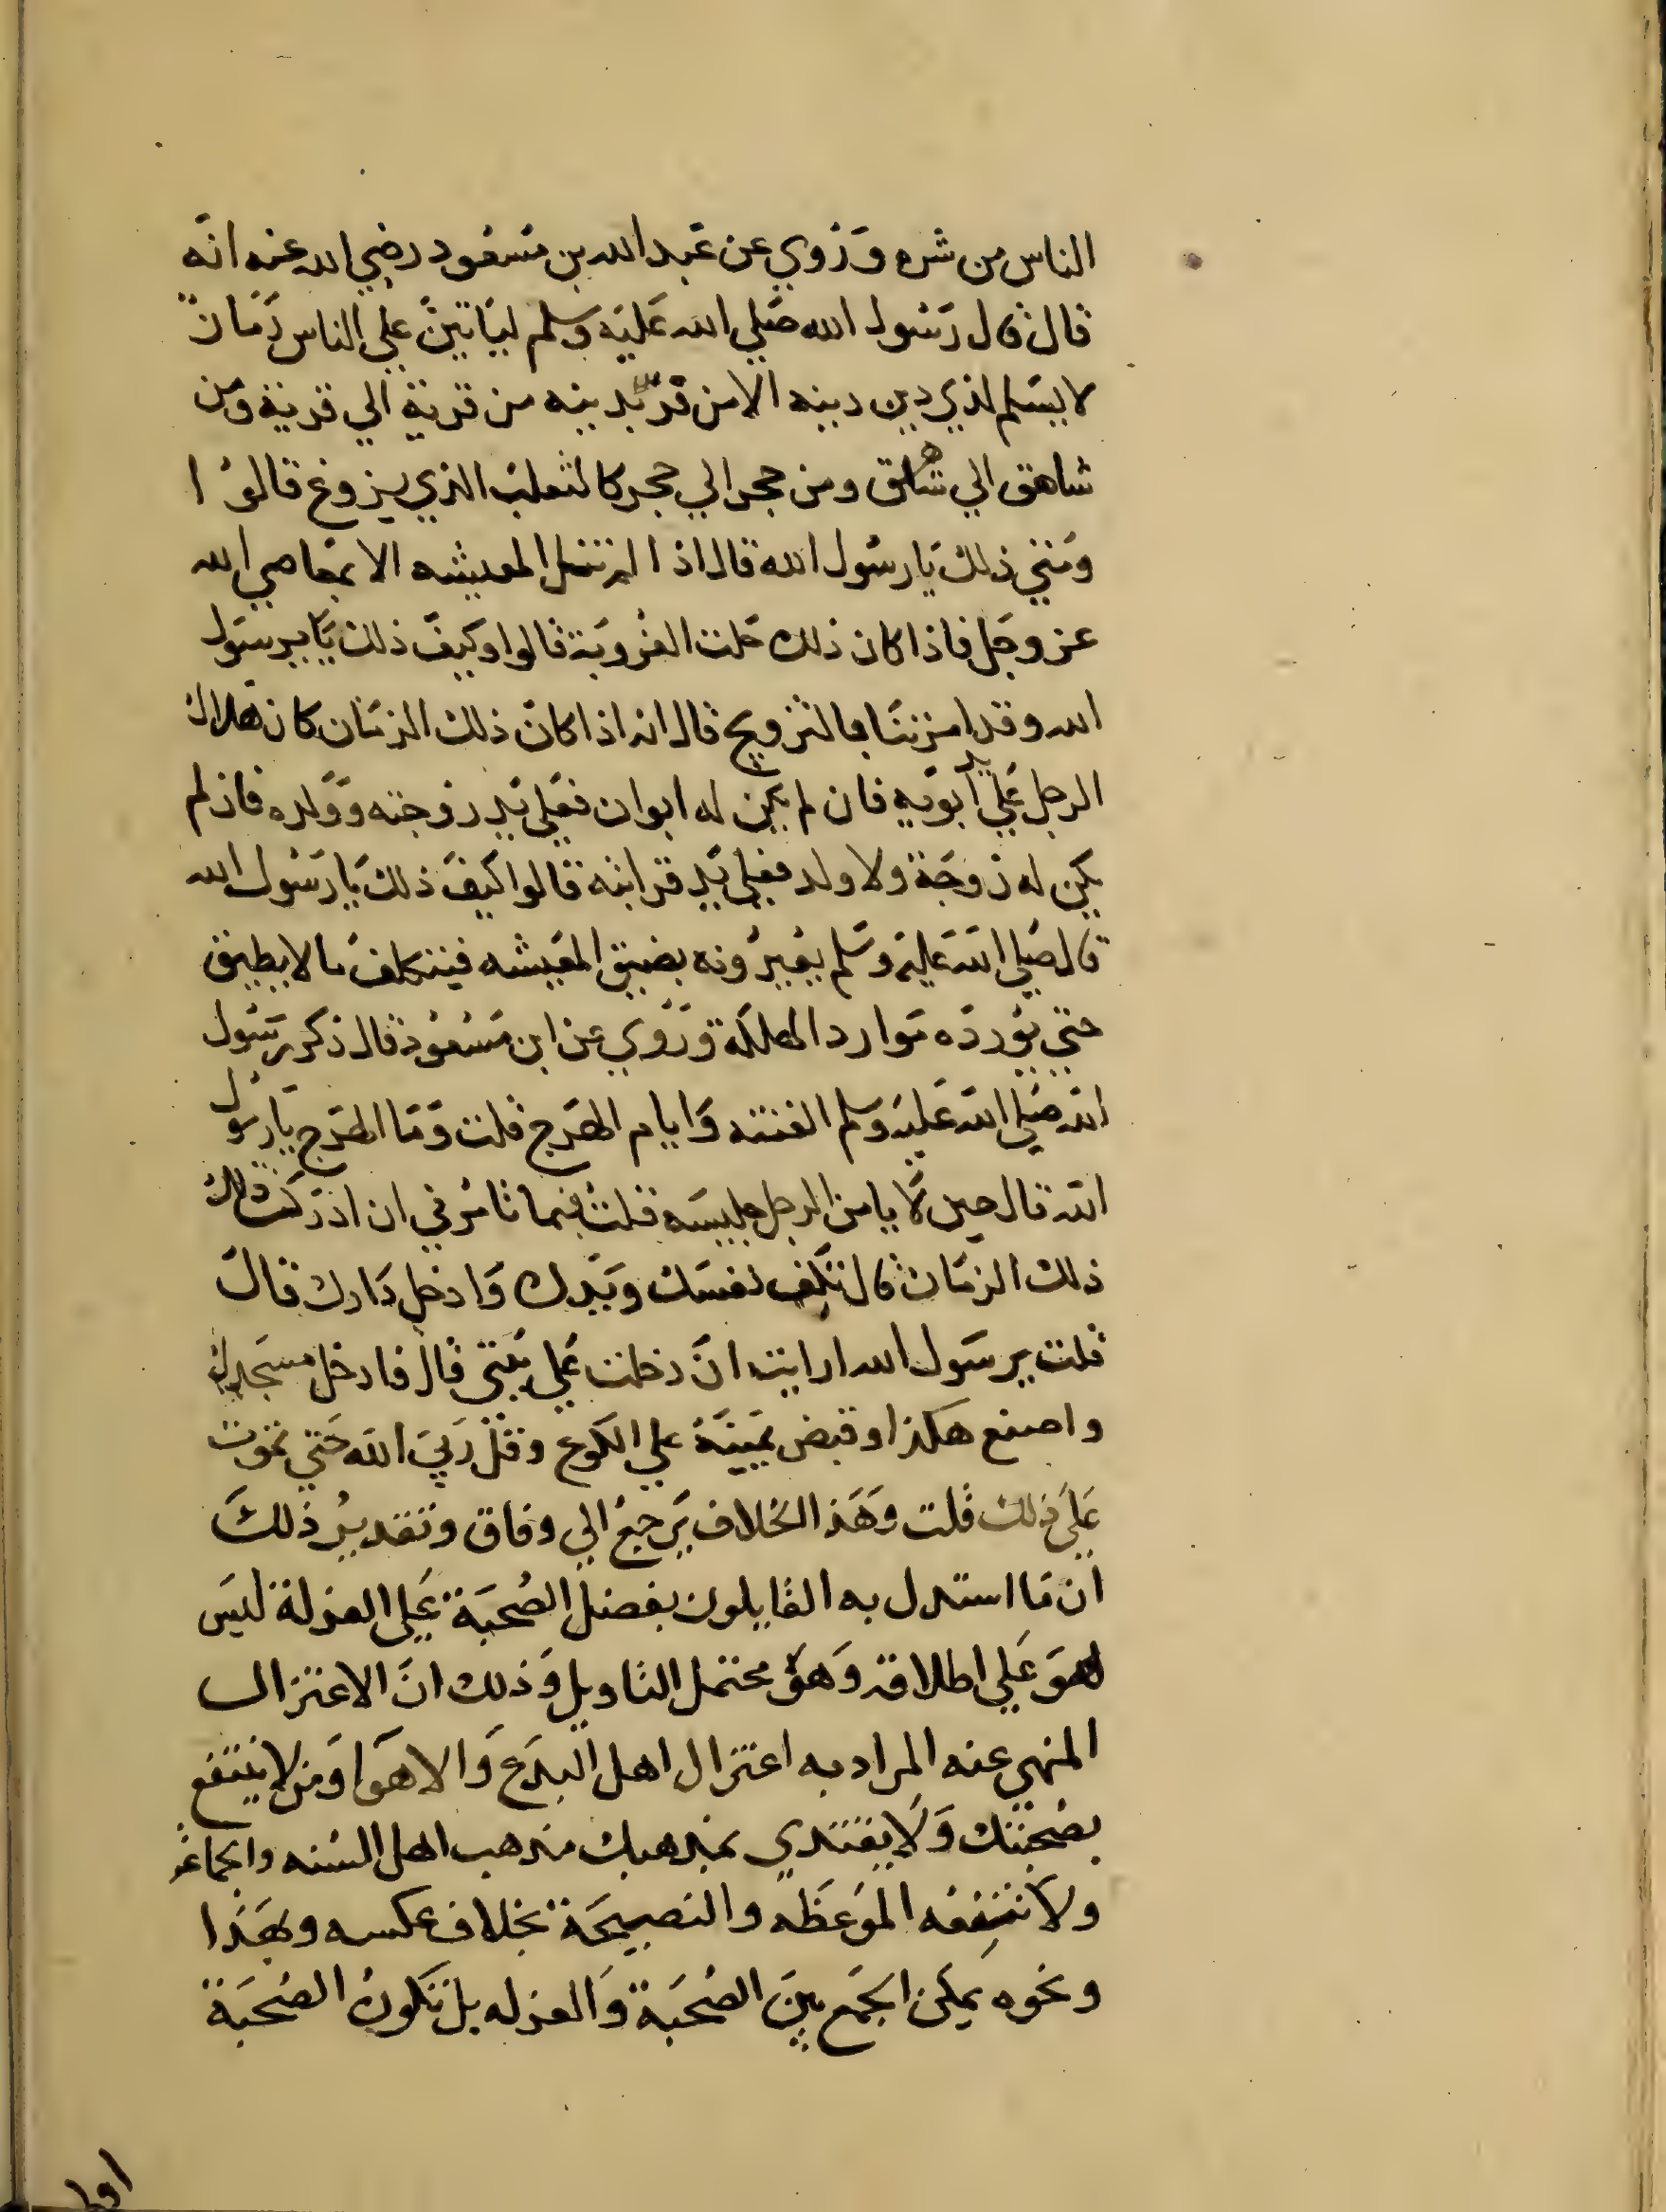 الناس من شره وروي عن عبد الله بن مسعود رضي الله عنه انه
قال قال رسول الله صلي الله عليه وسلم لياتين علي الناس زمان
لا يسلم لذي دين دينه الا من فر بدينه من قرية الي قرية ومن
شاهق الي شاهق ومن حجر الي حجر كالثعلب الذي يزوغ قالوا
ومتي ذلك يا رسول الله قال اذا لم تنل المعيشه الا بمعاصي الله
عز وجل فاذا كان ذلك حلت العزوبة قالوا وكيف ذلك يا يرسول
الله وقد امرتنا بالتزويج قال انه اذا كان ذلك الزمان كان هلاك
الرجل علي يد ابويه فان لم يكن له ابوان فعلي يد زوجته وولده فان لم
يكن له زوجة ولا ولد فعلي يد قرابته قالوا كيف ذلك يا رسول الله
قال صلي الله عليه وسلم يعيرونه بضيق المعيشه فيتكلف ما لا يطيق
حتي يورده موارد الهلكة وروي عن ابن مسعود قال ذكر رسول
الله صلي الله عليه وسلم الفتنه وايام الهرج قلت وما الهرج يا رسول
الله قال حين لا يامن الرجل جليسه قلت فبما تامرني ان ادركت ذلك
ذلك الزمان قال تكف نفسك ويدك وادخل دارك قال
قلت يرسول الله ارايت ان دخلت علي بيتي قال فادخل مسجدك
واصنع هكذا وقبض بيمينه علي الكوع وقل ربي الله حتي تموت
علي ذلك قلت وهذ الخلاف يرجع الي وفاق وتقدير ذلك
ان ما استدل به القايلون بفضل الصحبة علي العزلة ليس
هو علي اطلاقه وهو محتمل التاويل وذلك ان الاعتزال
المنهي عنه المراد به اعتزال اهل البدع والاهوا ومن لا ينتفع
بصحبتك ولا يقتدي بمذهبك مذهب اهل السنه والجماعه
ولا تنفعه الموعظه والنصيحة بخلاف عكسه وبهذا
ونحوه يمكن الجمع بين الصحبة والعزله بل تكون الصحبة
اولي